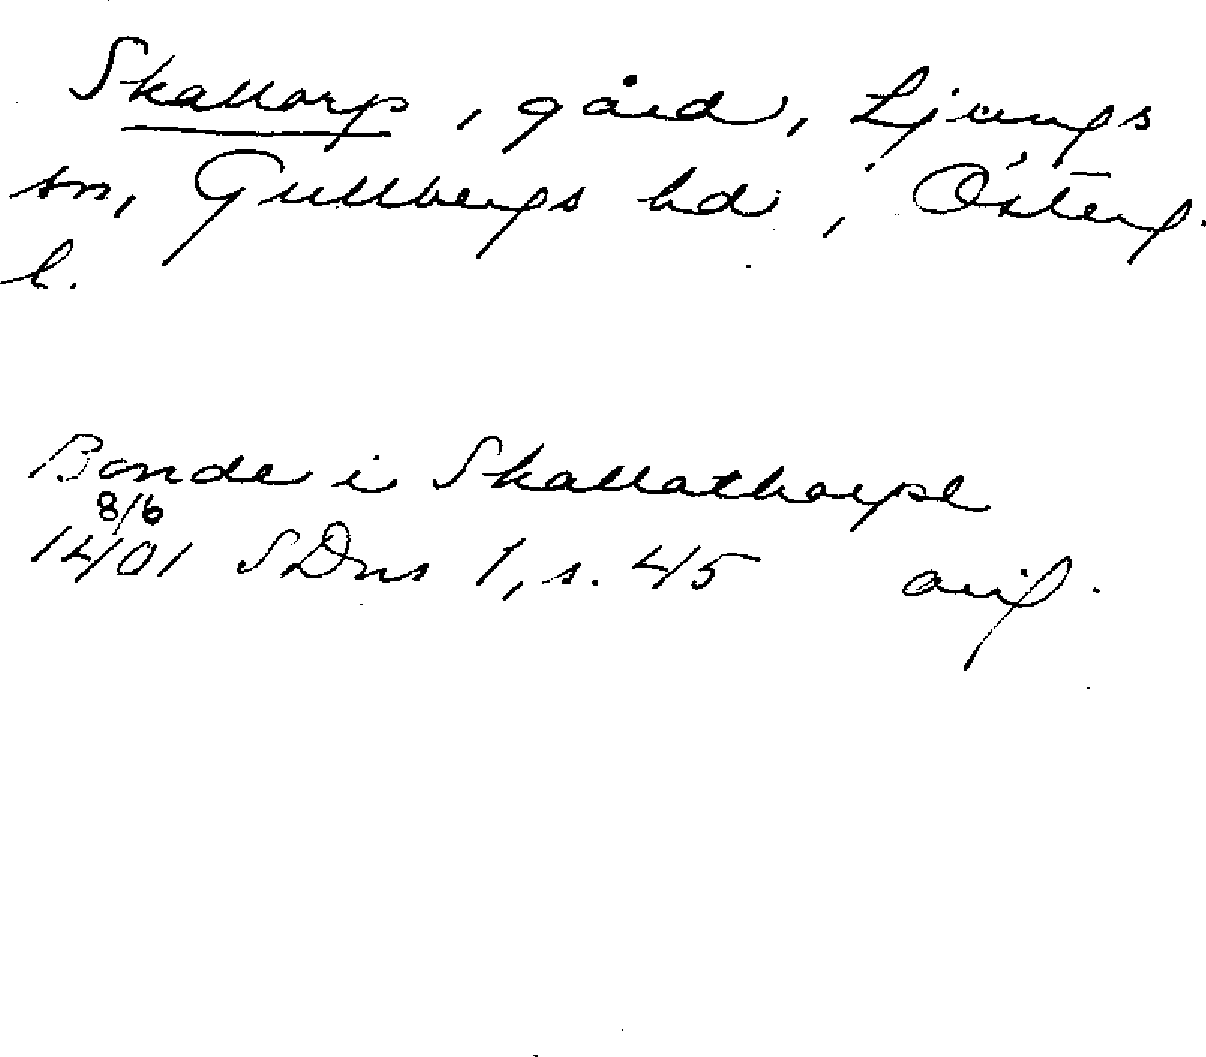 Skattorp, gård, Ljungs
sn, Gullbergs hd, Österg.
l.
Bonde i Skattathorpe
8/6
1401 SDns 1, s. 45 avs.